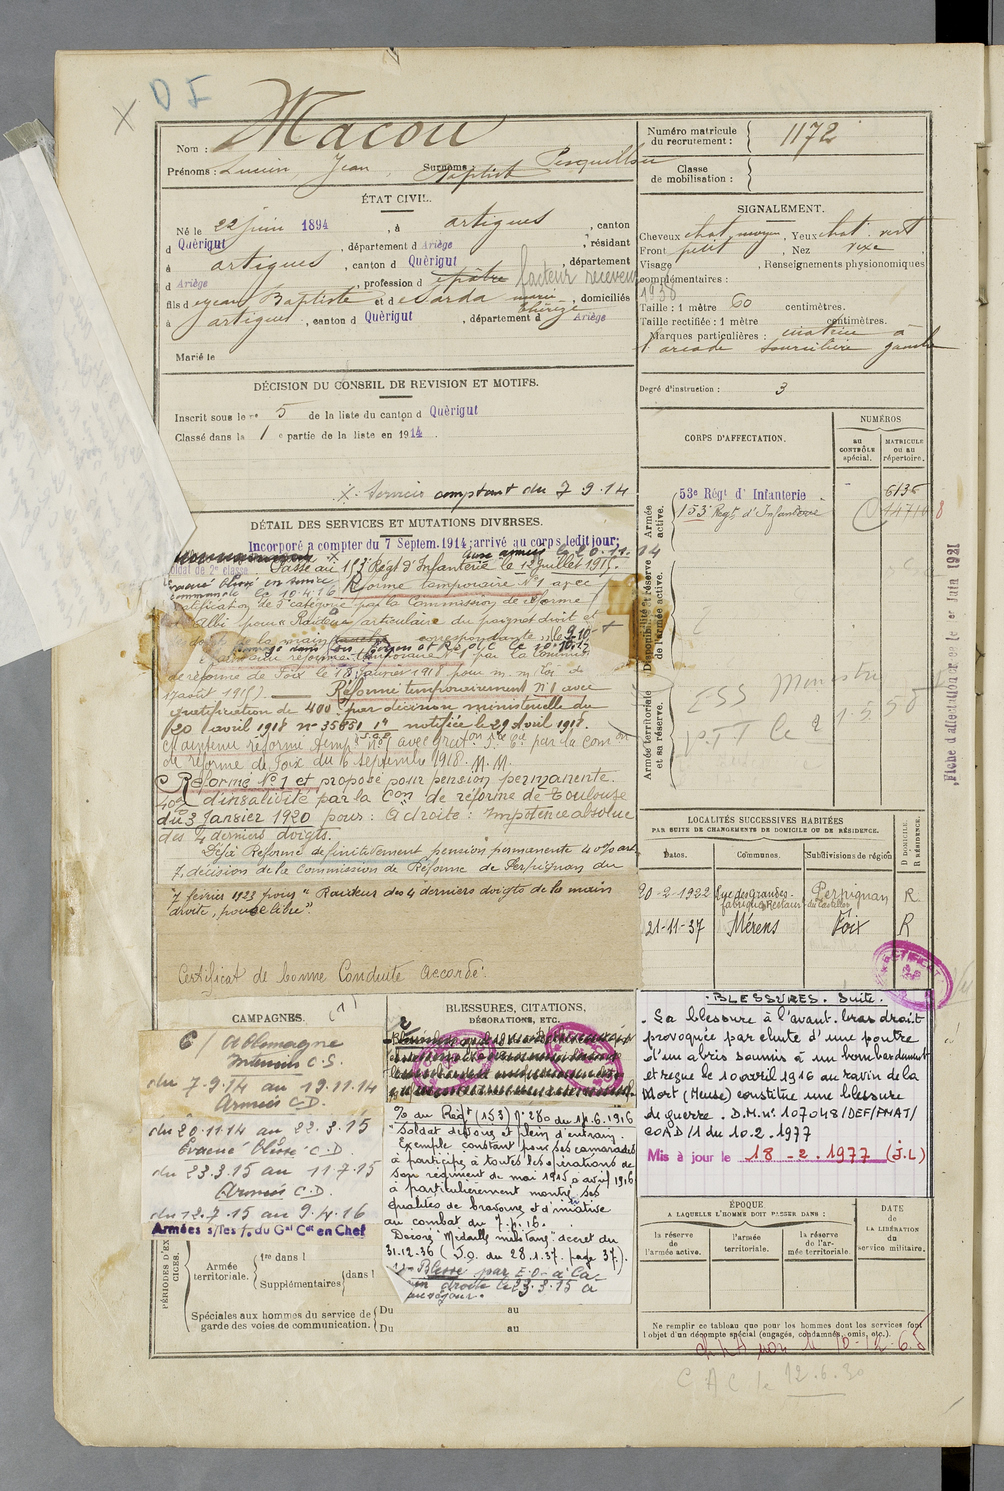 D I
Nom : Macou
Numéro matricule du recrutement : 1172
Prénoms : Lucien, Jean, Baptiste Surnoms :
Classe de mobilisation :
ÉTAT CIVIL.
Né le 22 juin 1894, à artigues, canton
d Quérigut, département d Ariège, résidant
à artigues, canton d Quérigut, département
d Ariège, profession d facteur receveur
fils d Jean Baptiste et d marie thérèze, domiciliés
à artigues, canton d Quérigut, département d Ariège
Marié le
SIGNALEMENT.
Cheveux chat. moyen, Yeux chat. vert
Front petit, Nez vexe
Visage , Renseignements physionomiques
complémentaires :
1938
Taille : 1 mètre 60 centimètres.
Taille rectifiée : 1 mètre centimètres.
Marques particulières : cicatrice à
l'arcade sourcilière gauche
Degré d'instruction : 3
DÉCISION DU CONSEIL DE REVISION ET MOTIFS.
Inscrit sous le n° 5 de la liste du canton d Quérigut
Classé dans la 1 e partie de la liste en 1914.
X. Services comptant du 7.9.14
CORPS D'AFFECTATION.
NUMÉROS
AU CONTRÔLE spécial.
MATRICULE OU AU répertoire.
Armée active.
53e Régt d' Infanterie
6135
153e Régt d'Infanterie
Disponibilité et réserve de l'armée active.
Armée territoriale et sa réserve.
ESS Ministre
P.T.T le 2.1.5.50
Fiche d'affectation
Juin 1921
DÉTAIL DES SERVICES ET MUTATIONS DIVERSES.
Incorporé à compter du 7 Septem. 1914; arrivé au corps ledit jour;
soldat de 2e classe
Aux armées le 20.11.14
Passé au 153 Régt d'Infanterie le 12 juillet 1915.
Evacué blessé en service
commandé le 10.4.16
Réforme temporaire N°1 avec
gratification de 5e catégorie par la Commission de réforme
d'Albi pour: Raideur articulaire du poignet droit et
des doigts de la main correspondante, le 9-10-
de réforme de Foix le 18 janvier 1918 pour m. m. (Loi de
17 août 1915). Réformé temporairement n°1 avec
gratification de 400f par décision ministérielle du
20 avril 1918 n° 35851 notifiée le 29 avril 1918.
Maintenu réforme temp. n°1 avec grat.on 5e Cie par la Com.on
de réforme de Foix du 6 septembre 1918. M.M.
Réformé N°1 et proposé pour pension permanente
40% d'insalidité par la Con de réforme de Toulouse
du 3 Janvier 1920 pour: à droite: impotence absolue
des 4 derniers doigts.
Déjà Réformé définitivement pension permanente 40% art
7, décision de la Commission de Réforme de Perpignan du
7 février 1923 pour "Raideur des 4 derniers doigts de la main
droite, pouce libre".
Certificat de bonne Conduite Accordé.
LOCALITÉS SUCCESSIVES HABITÉES
PAR SUITE DE CHANGEMENTS DE DOMICILE OU DE RÉSIDENCE.
Dates.
Communes.
Subdivisions de région
D DOMICILE.
R RÉSIDENCE.
20-2-1922 Rue des Grandes-fabriques Perpignan R
21-11-37 Mérens Foix R
CAMPAGNES.
C/ Allemagne
Intérieur C.S.
du 7.9.14 au 19.11.14
Armées C.D.
du 20.11.14 au 22.3.15
Evacué Blessé C.D.
du 23.3.15 au 11.7.15
Armées C.D.
du 12.7.15 au 9.4.16
Armées s/les f. du Gal Cdt en Chef
BLESSURES, CITATIONS,
DÉCORATIONS, ETC.
% du Régt (153) N° 280 du 14.6.1916
"Soldat dévoué et plein d'entrain.
Exemple constant pour ses camarades
à participé à toutes les opérations de
son régiment de mai 1915 à avril 1916
à particulièrement montré ses
qualités de bravoure et d'initiative
au combat du 7.4.16.
Décoré "Médaille militaire" décret du
31.12.36 (J.O. du 28.1.37. page 37).
Blessé par E.O. à la
main droite le 23.3.15 à
.BLESSURES. Suite.
. La blessure à l'avant-bras droit
provoquée par chute d'une poutre
d'un abris soumis à un bombardement
et reçue le 10 avril 1916 au ravin de la
Mort (Meuse) constitue une blessure
de guerre. D.M. n° 107048/DEF/PMAT/
COAD/1 du 10.2.1977
Mis à jour le 18-2-1977 (J.L)
PÉRIODES D'EXERCICES.
Armée territoriale.
1re dans l
Supplémentaires dans l
Spéciales aux hommes du service de garde des voies de communication.
Du au
Du au
ÉPOQUE
A LAQUELLE L'HOMME DOIT PASSER DANS :
la réserve de l'armée active.
l'armée territoriale.
la réserve de l'armée territoriale.
DATE
de
LA LIBÉRATION
du
service militaire.
Ne remplir ce tableau que pour les hommes dont les services font
l'objet d'un décompte spécial (engagés, condamnés, omis, etc.).
C A C le 12.6.30